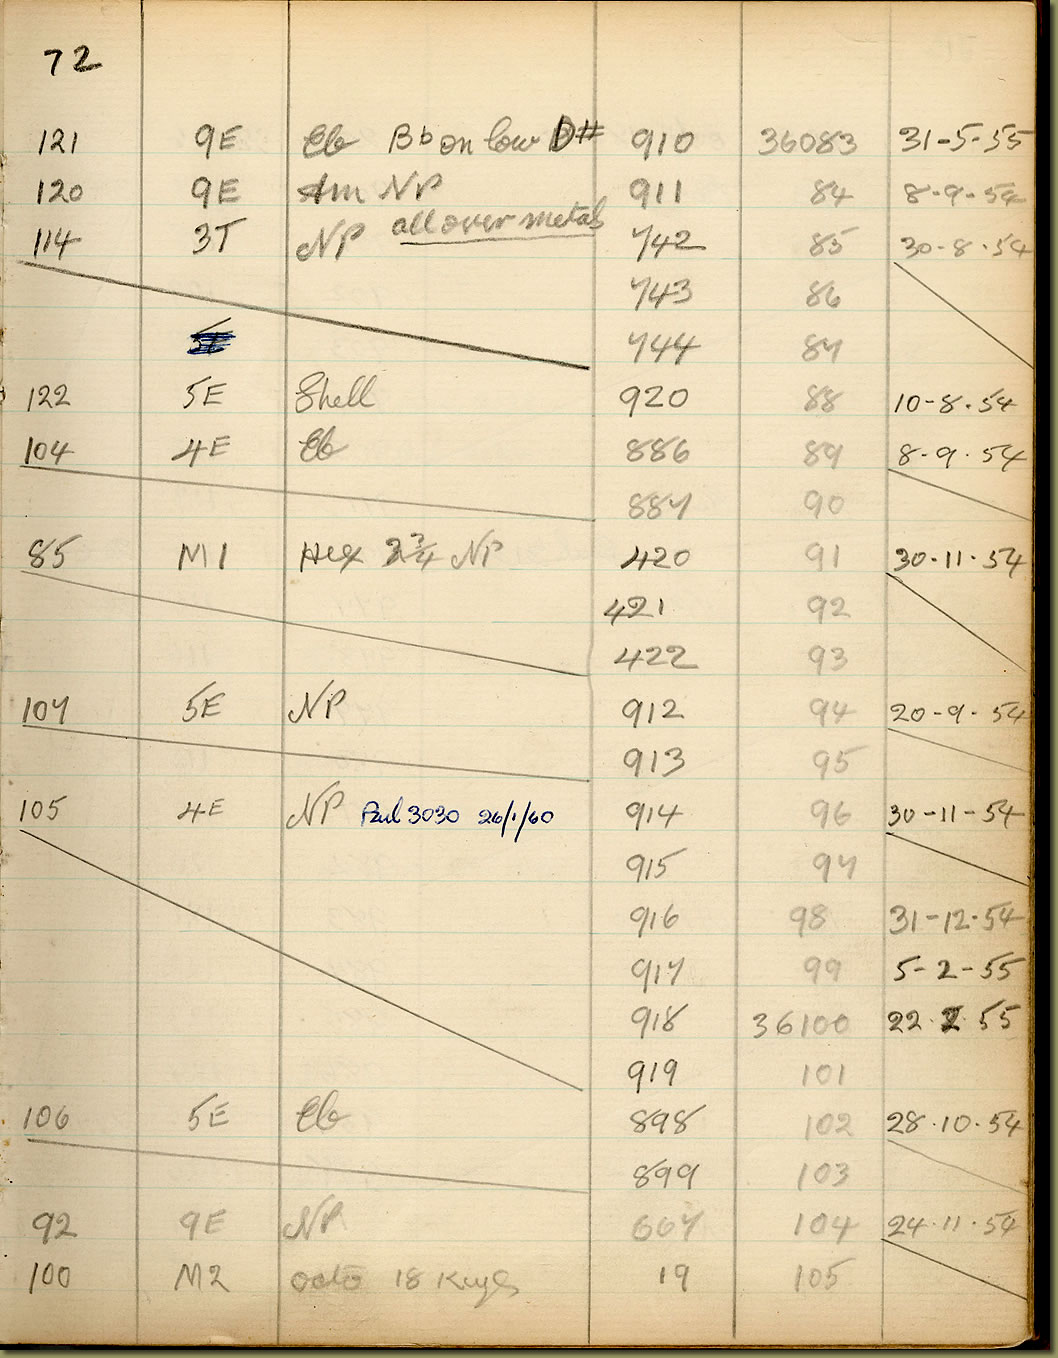 72
121 9E Eb Bb on low D# 910 36083 31-5-55
120 9E Am NP 911 84 8-9-54
114 3T NP all over metal 742 85 30-8-54
743 86
744 87
122 5E Shell 920 88 10-8-54
104 4E Eb 886 89 8-9-54
887 90
85 M1 Hex 2 3/4 NP 420 91 30-11-54
421 92
422 93
107 5E NP 912 94 20-9-54
913 95
105 4E NP 3030 26/1/60 914 96 30-11-54
915 97
916 98 31-12-54
917 99 5-2-55
918 36100 22 2 55
919 101
106 5E Eb 898 102 28.10.54
899 103
92 9E NP 667 104 24.11.54
100 M2 octo 18 Keys 19 105